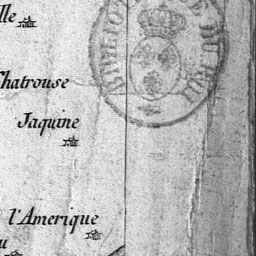 lle
Chatrouse
Jaquine
l'Amerique
u